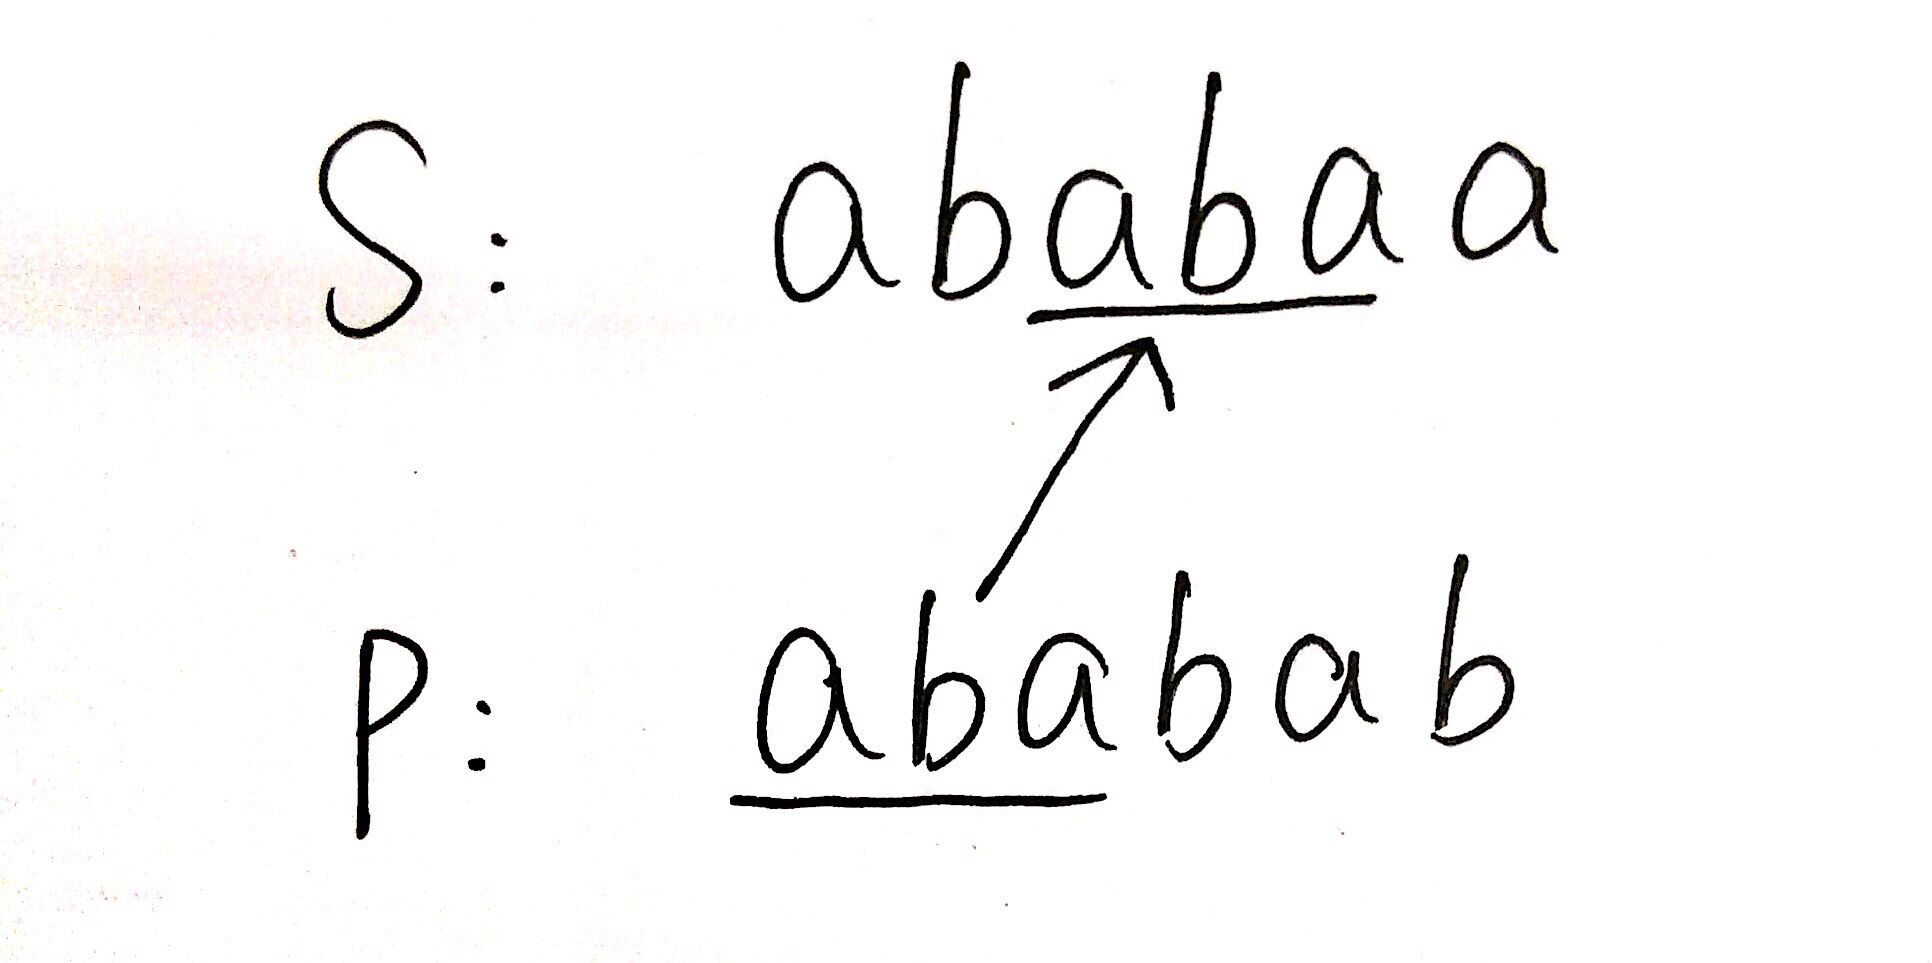 S: ababaa
P: ababab